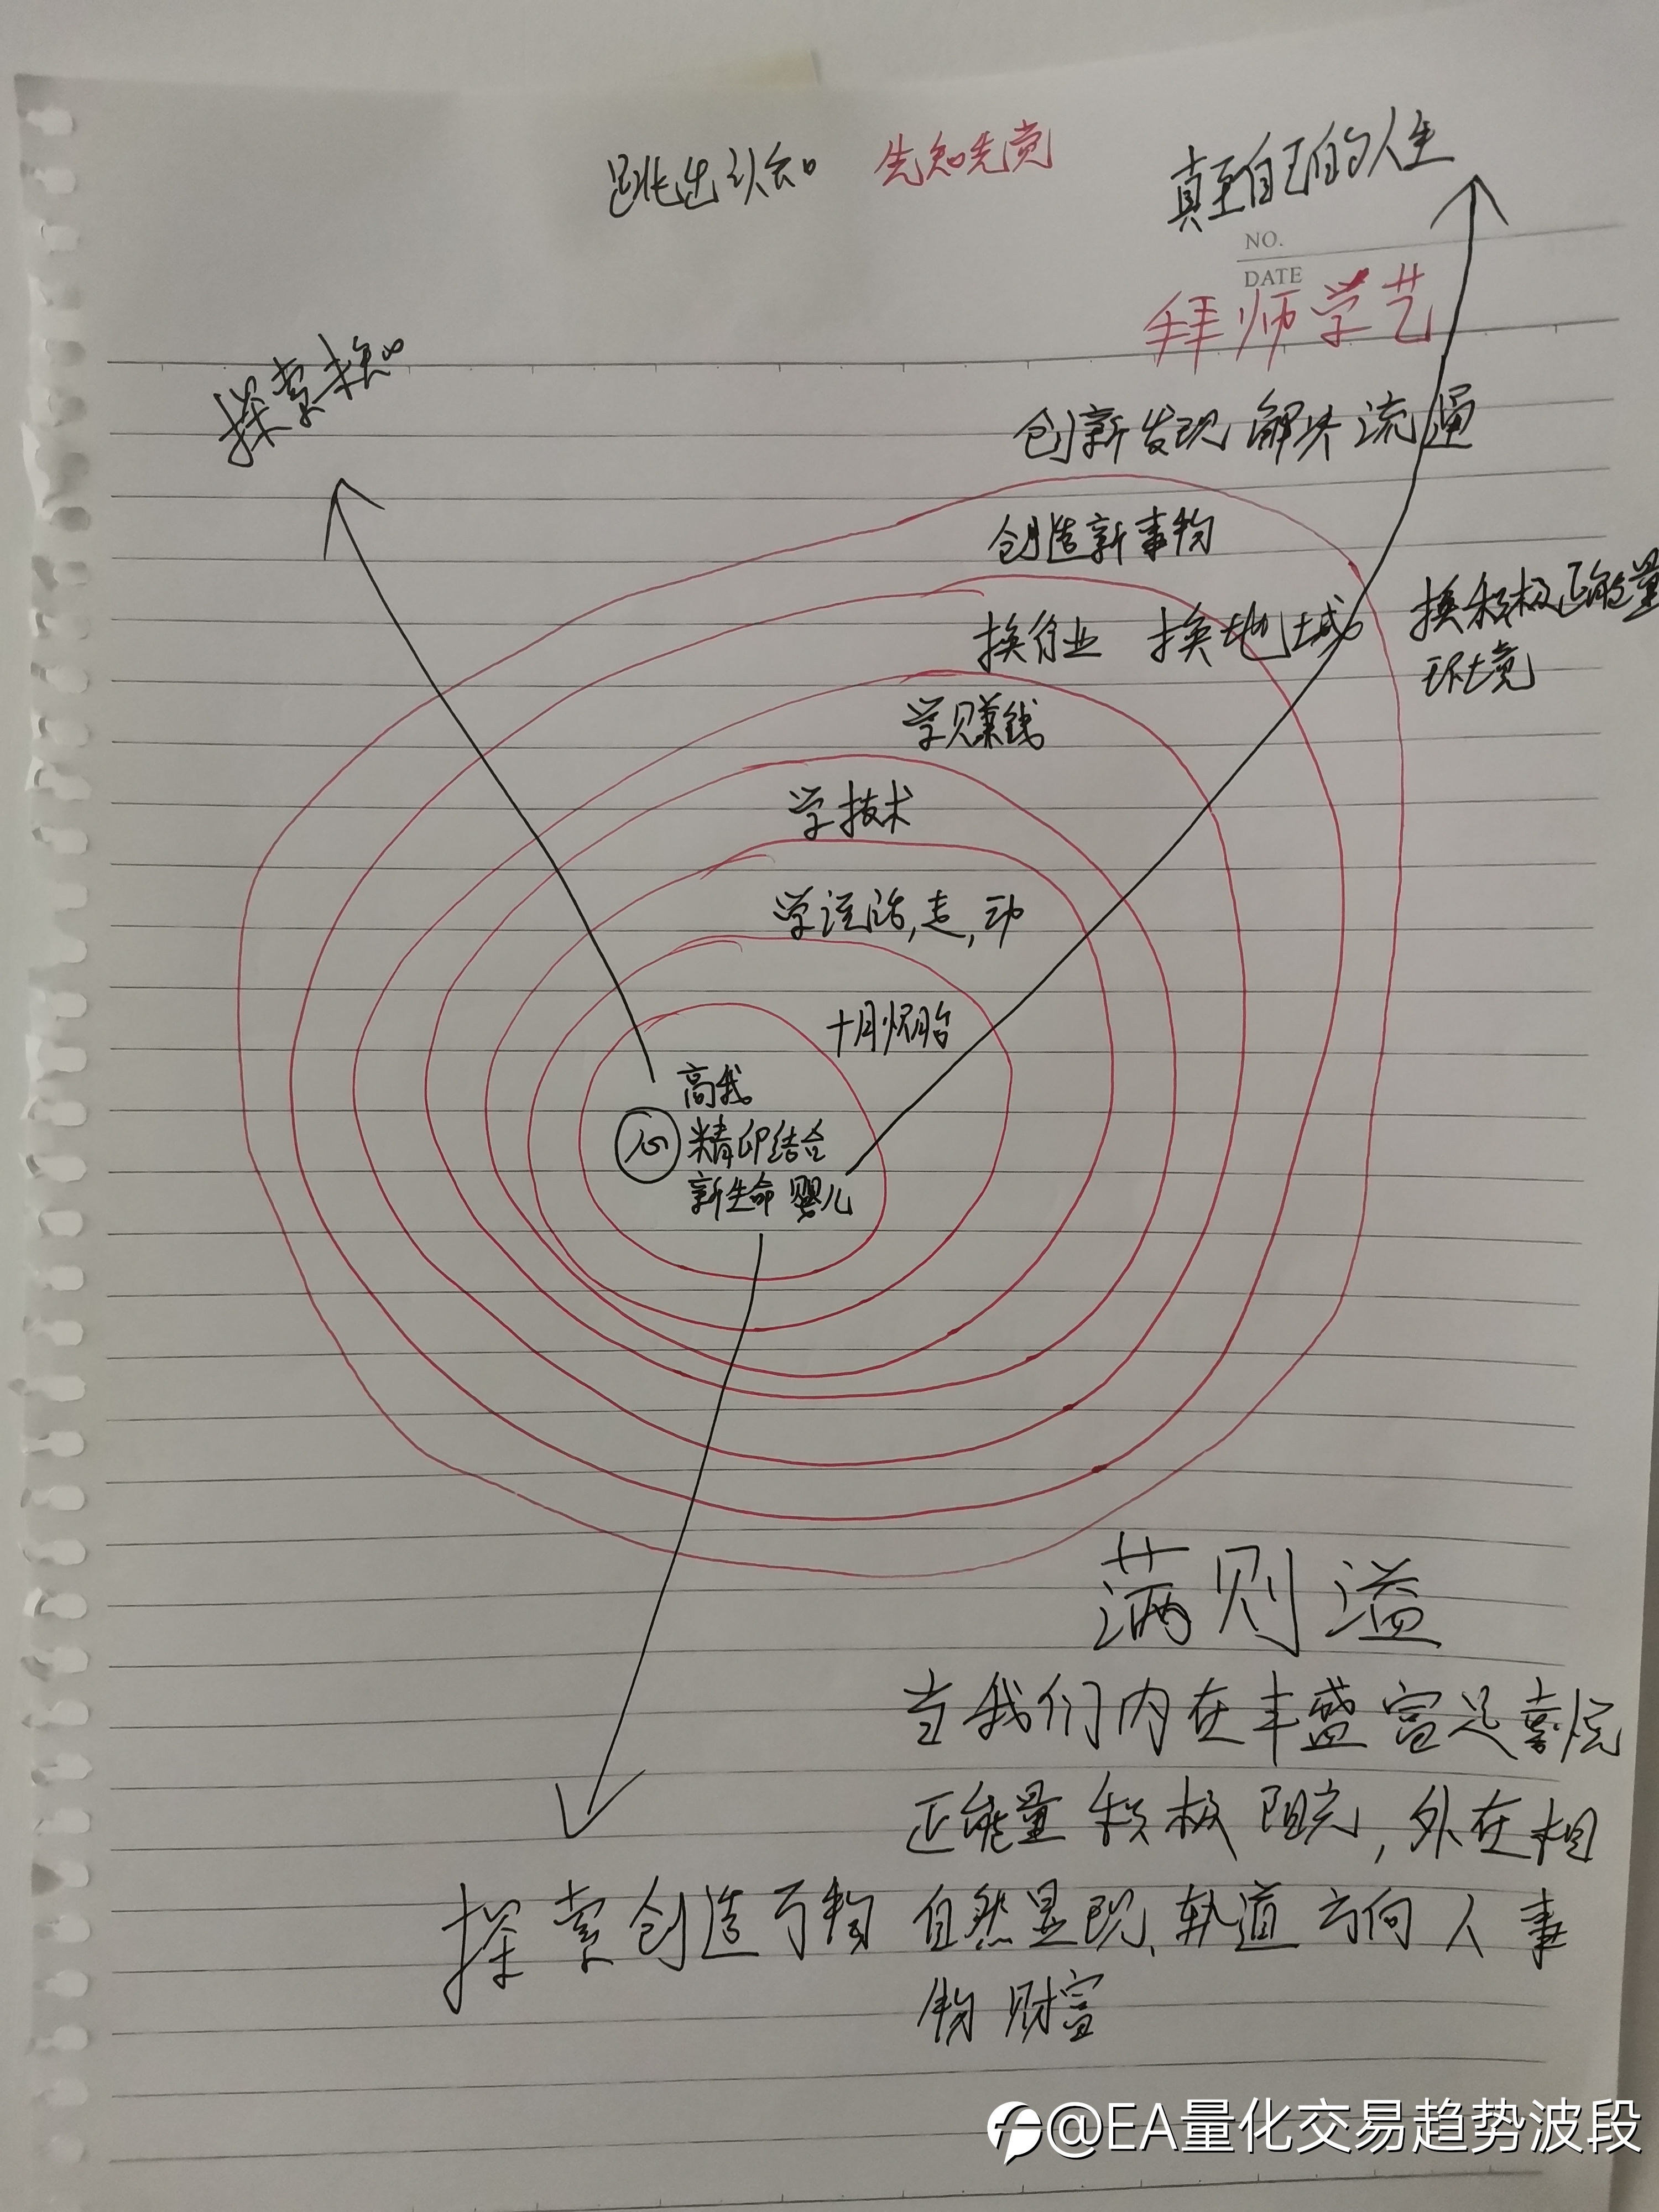 跳出认知 先知先觉
真正自己的人生
NO.
DATE
拜师学艺
探索未知
创新发现 解决 流通
创造新事物
换行业 换地域 换积极正能量
环境
学赚钱
学技术
学说话,走,动
十月怀胎
高我
心 精卵结合
新生命 婴儿
满则溢
当我们内在丰盛富足喜悦
正能量 积极 阳光,外在相
探索创造万物 自然显现、轨道方向人事
物财富
@EA量化交易趋势波段